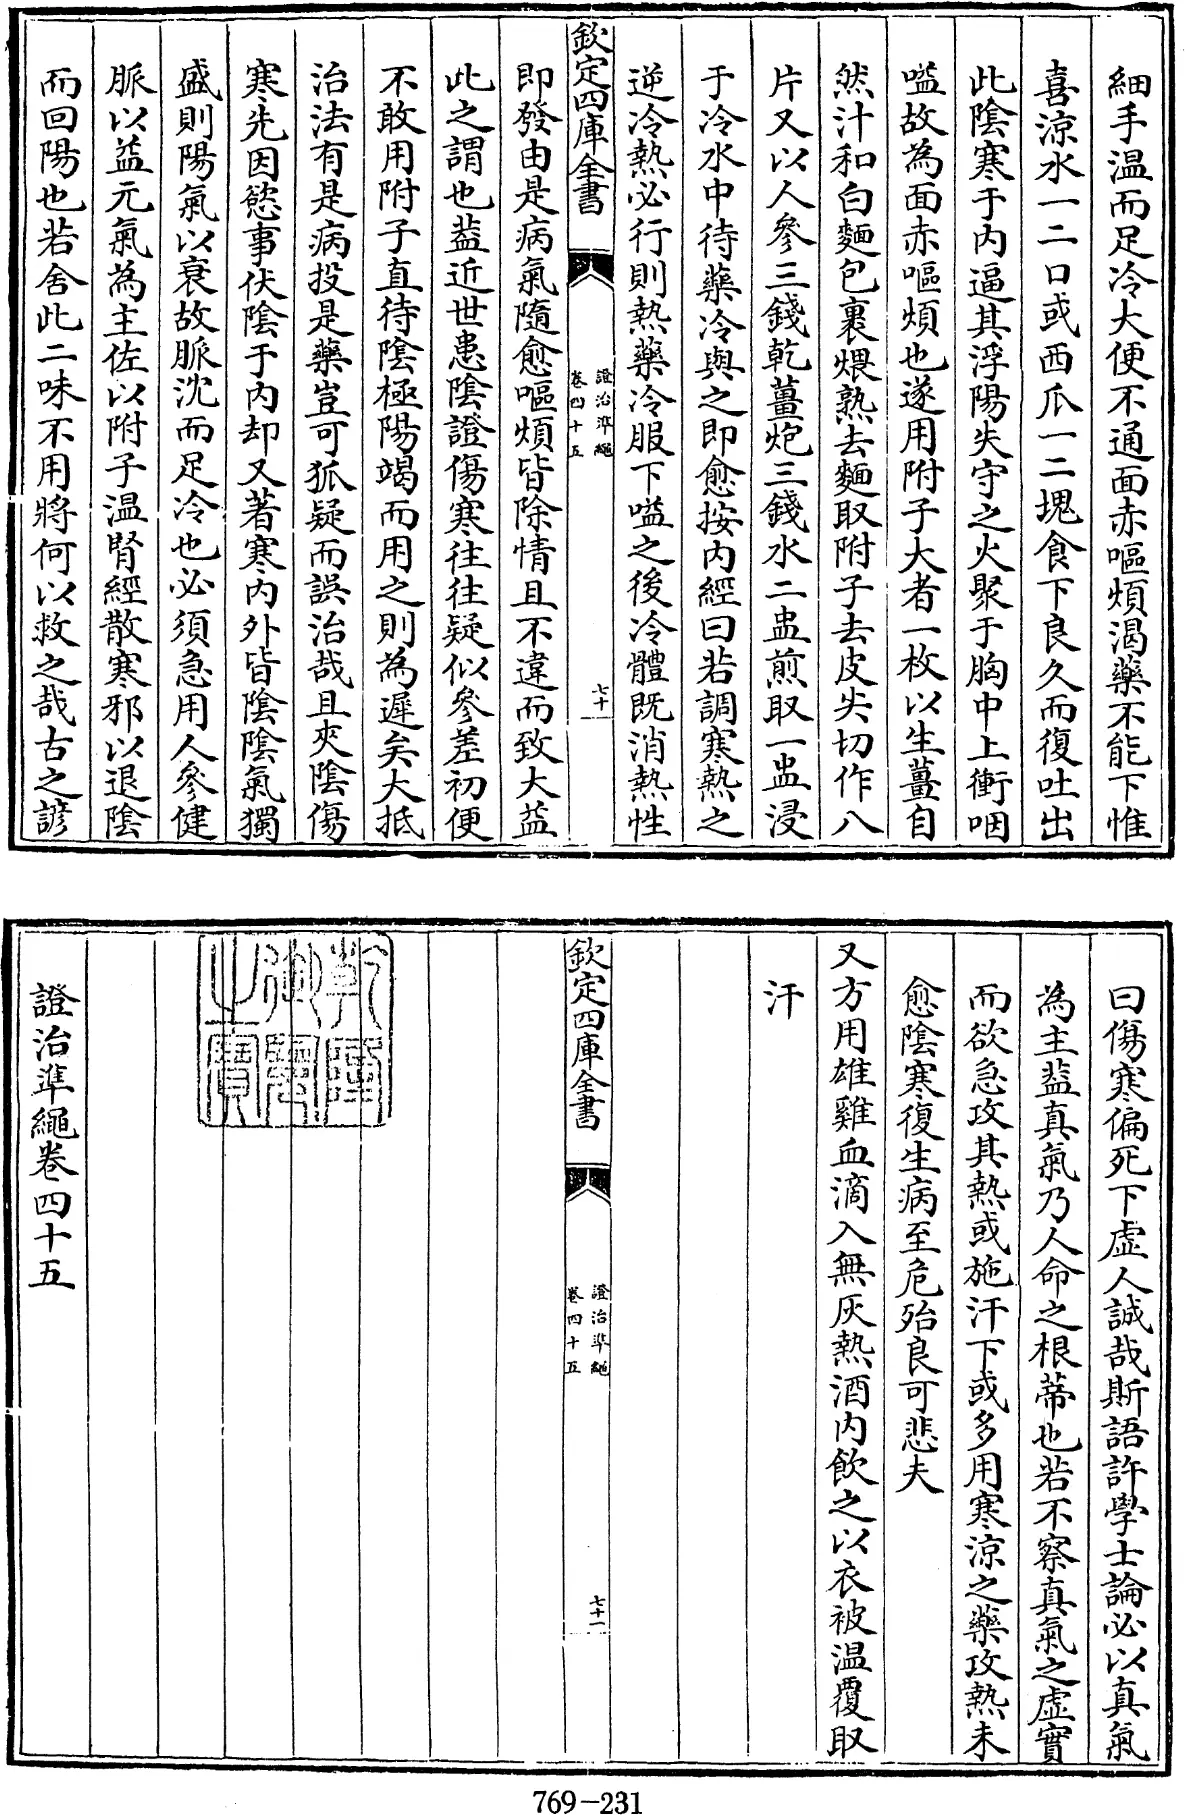 細手温而足冷大便不通面赤嘔煩渴藥不能下惟
喜涼水一二口或西瓜一二塊食下良久而復吐出
此陰寒于内逼其浮陽失守之火聚于胸中上衝咽
嗌故為面赤嘔煩也遂用附子大者一枚以生薑自
然汁和白麵包裹煨熟去麵取附子去皮尖切作八
片又以人參三錢乾薑炮三錢水二盅煎取一盅浸
于冷水中待藥冷與之即愈按内經曰若調寒熱之
逆冷熱必行則熱藥冷服下嗌之後冷體既消熱性
欽定四庫全書
證治準繩
卷四十五
七十
即發由是病氣隨愈嘔煩皆除情且不違而致大益
此之謂也葢近世患陰證傷寒往往疑似參差初便
不敢用附子直待陰極陽竭而用之則為遲矣大抵
治法有是病投是藥豈可狐疑而誤治哉且夾陰傷
寒先因慾事伏陰于内却又著寒内外皆陰陰氣獨
盛則陽氣以衰故脈沈而足冷也必須急用人參健
脈以益元氣為主佐以附子温腎經散寒邪以退陰
而回陽也若舍此二味不用將何以救之哉古之諺
曰傷寒偏死下虛人誠哉斯語許學士論必以真氣
為主葢真氣乃人命之根蒂也若不察真氣之虛實
而欲急攻其熱或施汗下或多用寒涼之藥攻熱未
愈陰寒復生病至危殆良可悲夫
又方用雄雞血滴入無灰熱酒内飲之以衣被温覆取
汗
欽定四庫全書
證治準繩
卷四十五
七十一
乾隆
御覽
之寶
證治準繩卷四十五
769-231